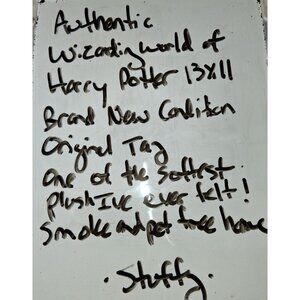 Authentic
Wizarding world of
Harry Potter 13x11
Brand New Condition
Original Tag
one of the softest
plush Ive ever felt!
smoke and pet free home
· Stuffy ·